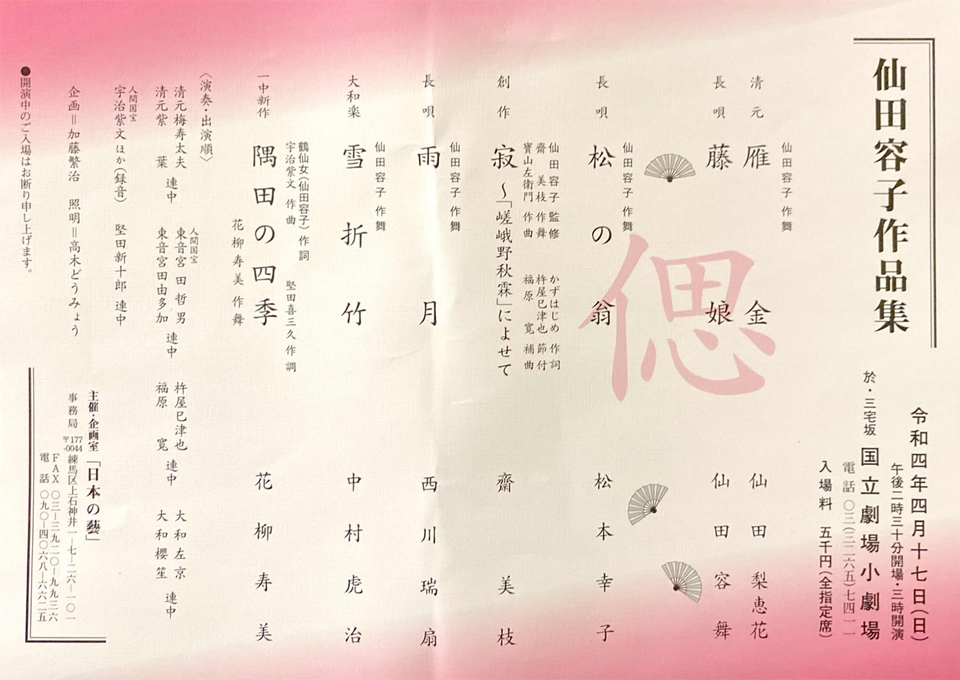 仙田容子作品集
令和四年四月十七日(日)
午後二時三十分開場・三時開演
於・三宅坂 国立劇場小劇場
電話 〇三(三二六五)七四一一
入場料 五千円(全指定席)
偲
仙田容子 作舞
清元 雁金 仙田梨恵花
長唄 藤娘 仙田容舞
仙田容子 作舞
長唄 松の翁 松本幸子
仙田容子 監修 かずはじめ 作詞
齋美枝 作舞 杵屋巳津也 節付
寶山左衛門 作曲 福原寛 補曲
創作 寂〜「嵯峨野秋霖」によせて 齋美枝
仙田容子 作舞
長唄 雨月 西川瑞扇
仙田容子 作舞
大和楽 雪折竹 中村虎治
鶴仙女(仙田容子)作詞 堅田喜三久 作調
宇治紫文 作曲
一中新作 隅田の四季 花柳寿美
花柳寿美 作舞
〈演奏・出演順〉
清元梅寿太夫
清元紫葉 連中
人間国宝
東音宮田哲男
東音宮田由多加 連中
杵屋巳津也
福原寛 連中
大和左京
大和櫻笙 連中
人間国宝
宇治紫文 ほか(録音)
堅田新十郎 連中
企画=加藤繁治 照明=高木どうみょう
●開演中のご入場はお断り申し上げます。
主催・企画室「日本の藝」
事務局 〒177-0044 練馬区上石神井一−七−二六−一〇一
FAX 〇三−三九二〇−九九三六
電話 〇九〇−四〇六八−六六二五